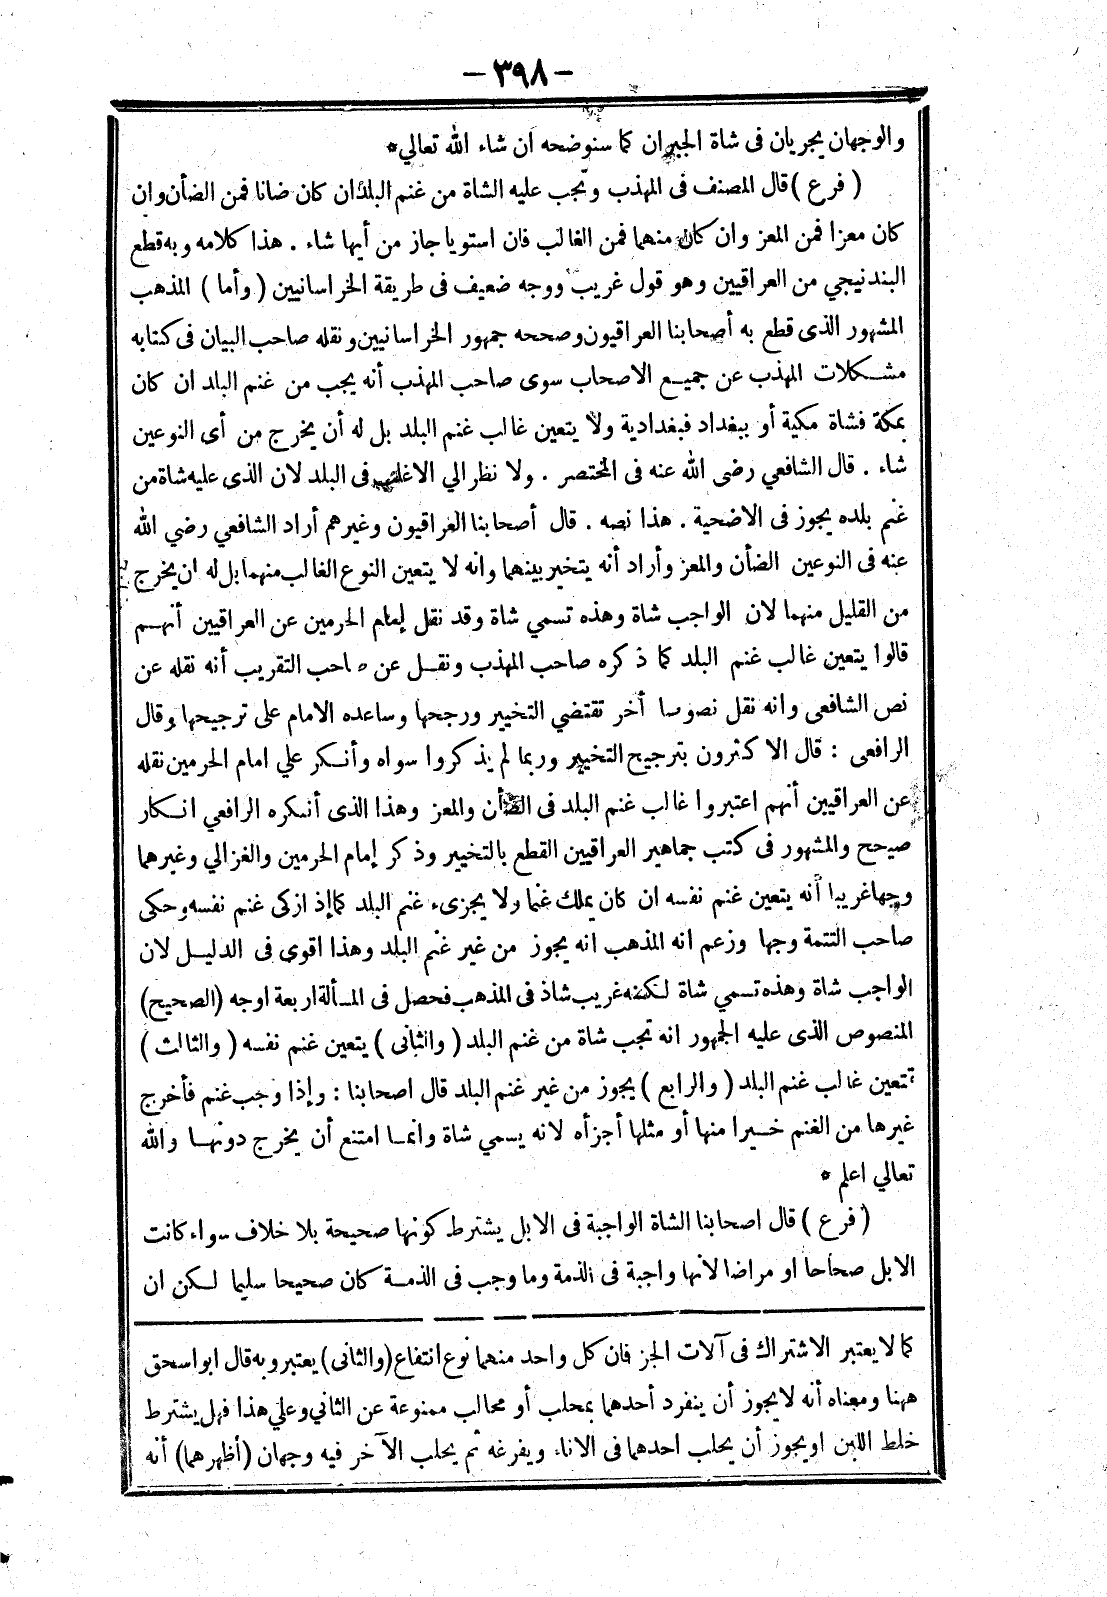 — ٣٩٨ —
والوجهان يجريان فى شاة الجبران كما سنوضحه ان شاء الله تعالي*
( فرع ) قال المصنف فى المهذب وتجب عليه الشاة من غنم البلد ان كان ضانا فمن الضأن وان
كان معزا فمن المعز وان كان منهما فمن الغالب فان استويا جاز من أيها شاء . هذا كلامه وبه قطع
البندنيجي من العراقيين وهو قول غريب ووجه ضعيف فى طريقة الخراسانيين ( وأما ) المذهب
المشهور الذى قطع به أصحابنا العراقيون وصححه جمهور الخراسانيين ونقله صاحب البيان فى كتابه
مشكلات المهذب عن جميع الاصحاب سوى صاحب المهذب أنه يجب من غنم البلد ان كان
بمكة فشاة مكية أو ببغداد فبغدادية ولا يتعين غالب غنم البلد بل له أن يخرج من أى النوعين
شاء . قال الشافعي رضى الله عنه فى المختصر . ولا نظر الي الاغلب فى البلد لان الذى عليه شاة من
غنم بلده يجوز فى الاضحية . هذا نصه . قال أصحابنا العراقيون وغيرهم أراد الشافعي رضي الله
عنه فى النوعين الضأن والمعز وأراد أنه يتخير بينهما وانه لا يتعين النوع الغالب منهما بل له ان يخرج
من القليل منهما لان الواجب شاة وهذه تسمي شاة وقد نقل إمام الحرمين عن العراقيين أنهم
قالوا يتعين غالب غنم البلد كما ذكره صاحب المهذب ونقل عن صاحب التقريب أنه نقله عن
نص الشافعى وانه نقل نصوصا أخر تقتضي التخيير ورجحها وساعده الامام على ترجيحها وقال
الرافعى : قال الاكثرون بترجيح التخيير وربما لم يذكروا سواه وأنكر علي امام الحرمين نقله
عن العراقيين أنهم اعتبروا غالب غنم البلد فى الضأن والمعز وهذا الذى أنكره الرافعي انكار
صيحح والمشهور فى كتب جماهير العراقيين القطع بالتخيير وذكر إمام الحرمين والغزالي وغيرهما
وجها غريبا أنه يتعين غنم نفسه ان كان يملك غنما ولا يجزىء غنم البلد كما إذ ازكى غنم نفسه وحكى
صاحب التتمة وجها وزعم انه المذهب انه يجوز من غير غنم البلد وهذا اقوى فى الدليل لان
الواجب شاة وهذه تسمي شاة لكنه غريب شاذ فى المذهب فحصل فى المسألة اربعة اوجه (الصحيح)
المنصوص الذى عليه الجمهور انه تجب شاة من غنم البلد ( والثانى ) يتعين غنم نفسه ( والثالث )
تتعين غالب غنم البلد ( والرابع ) يجوز من غير غنم البلد قال اصحابنا : وإذا وجب غنم فأخرج
غيرها من الغنم خيرا منها أو مثلها أجزأه لانه يسمي شاة وانما امتنع أن يخرج دونها والله
تعالي اعلم *
( فرع ) قال اصحابنا الشاة الواجبة فى الابل يشترط كونها صحيحة بلا خلاف سواء كانت
الابل صحاحا او مراضا لانها واجبة فى الذمة وما وجب فى الذمة كان صحيحا سليما لكن ان
كما لا يعتبر الاشتراك فى آلات الجز فان كل واحد منهما نوع انتفاع (والثانى) يعتبر وبه قال ابو اسحق
ههنا ومعناه أنه لا يجوز أن ينفرد أحدهما بمحلب أو محالب ممنوعة عن الثاني وعلي هذا فهل يشترط
خلط اللبن او يجوز أن يحلب احدهما فى الاناء ويفرغه ثم يحلب الآخر فيه وجهان (أظهرهما) أنه